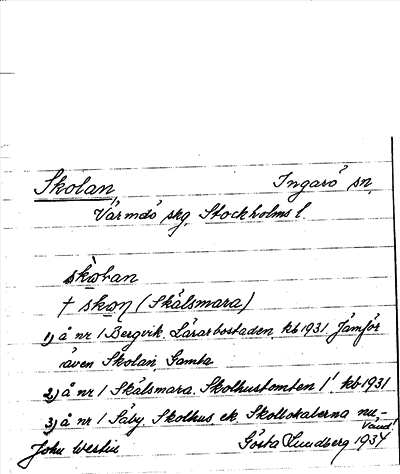 Skolan Ingarö sn,
Värmdö skg. Stockholms l.
skolan
† skoṇ (Skälsmara)
1) å nr 1 Bergvik. Lärarbostaden. kb 1931 Jämför
även Skolan, Gamla
2) å nr 1 Skälsmara. Skolhustomten 1! kb 1931
3) å nr 1 Säby. Skolhus ek. Skollokalerna nu-
vand!
John Westin Gösta Lundberg 1934